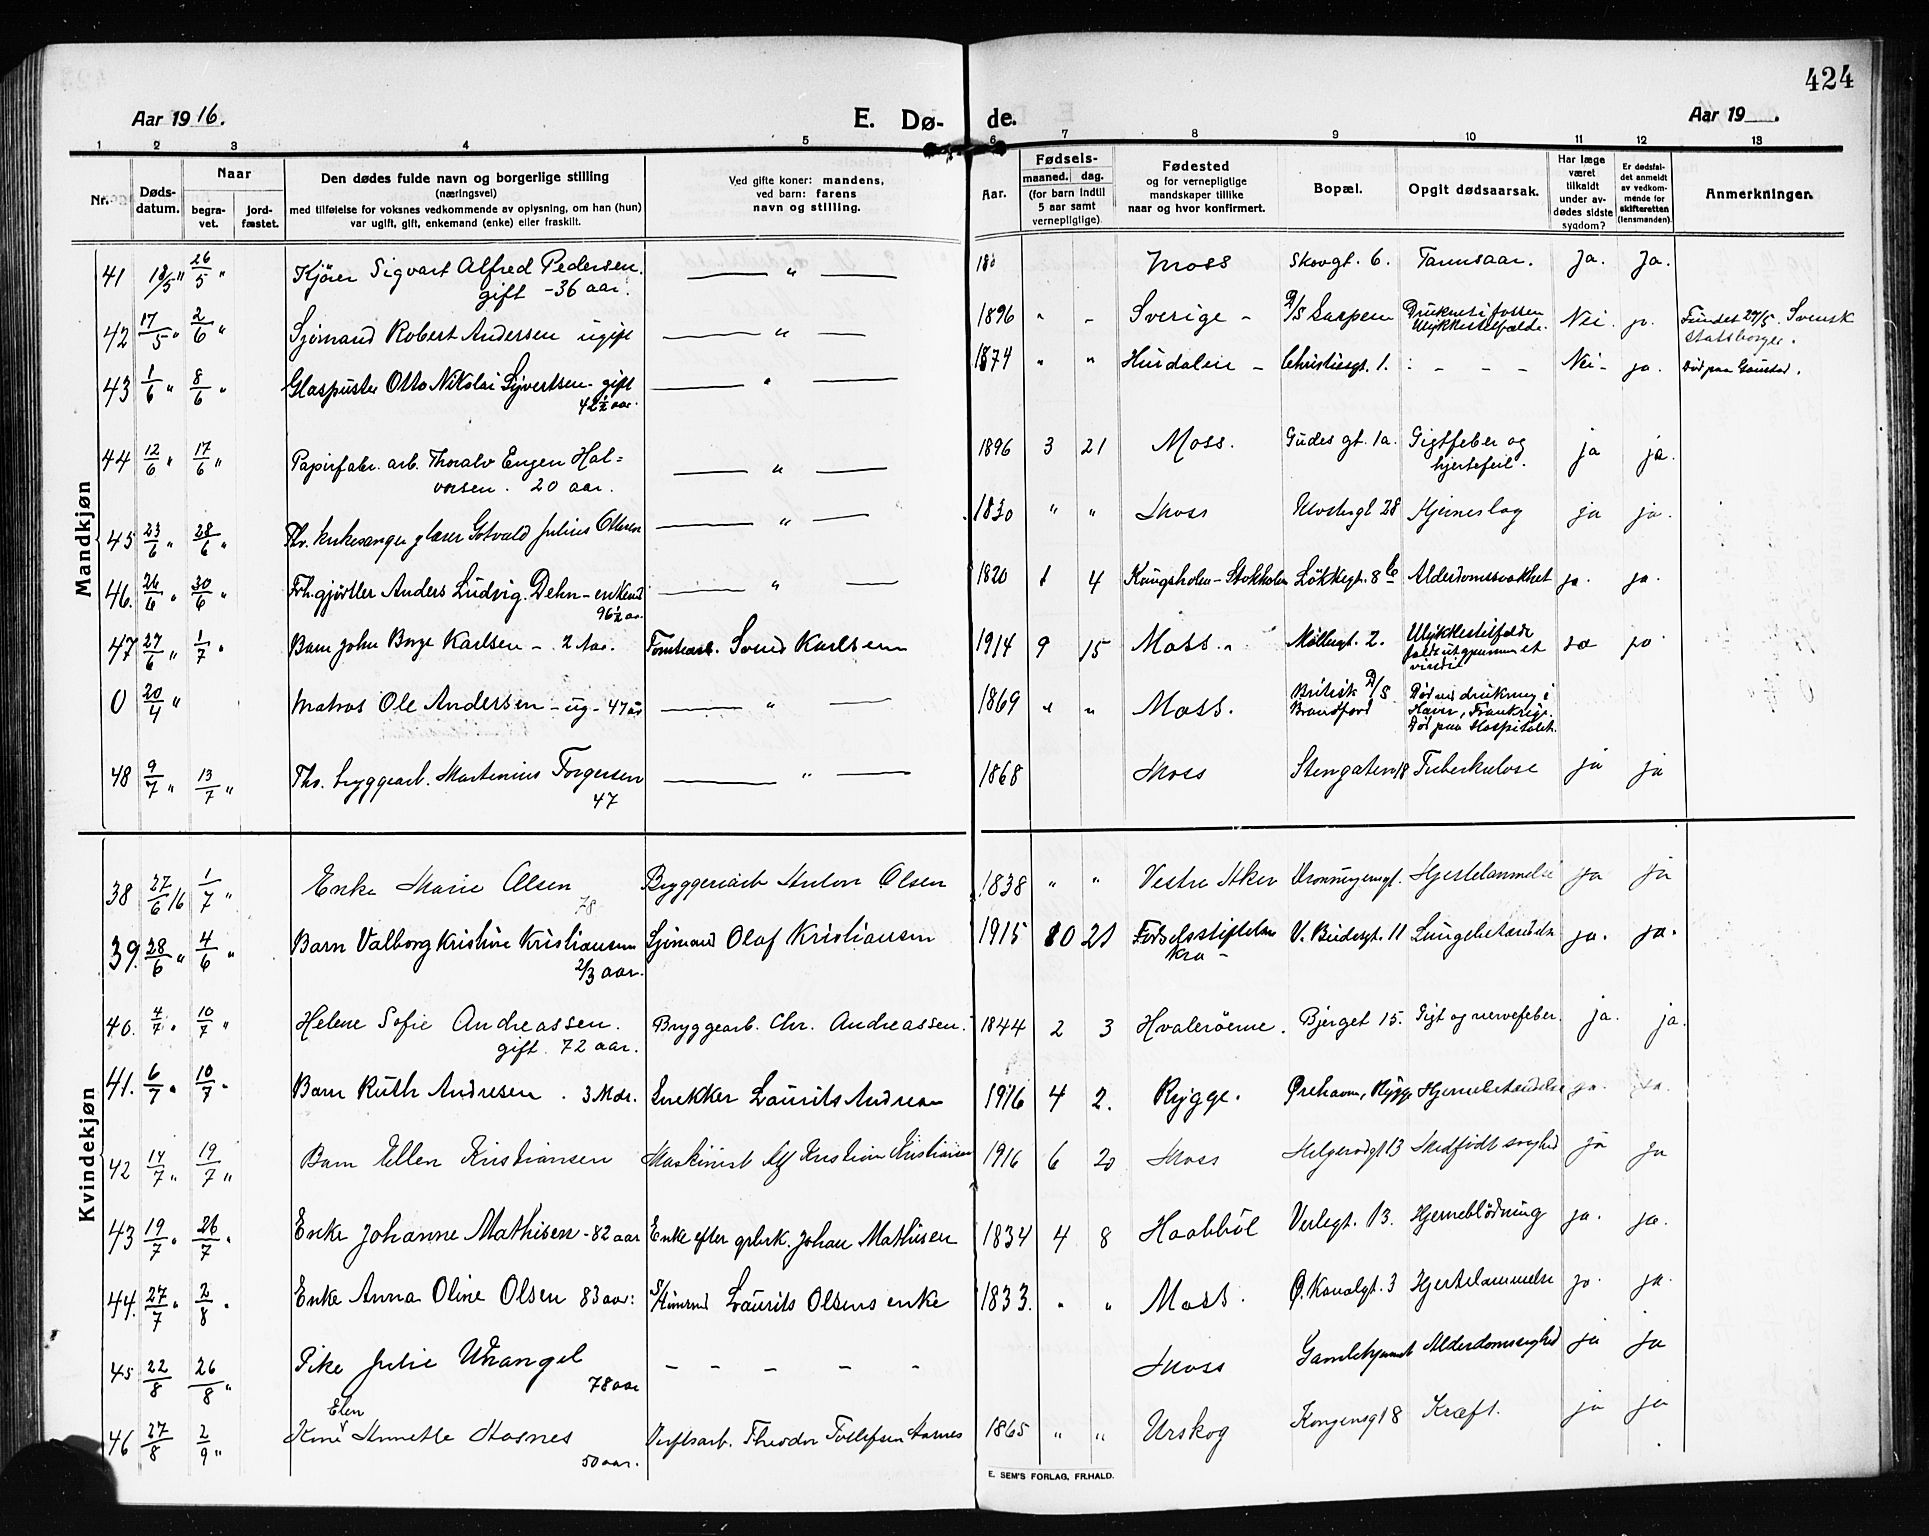 424
Aar 1916.
E. Dø-
de.
Aar 19
1 2 3 4 5 6 7 8 9 10 11 12 13
Nr.
Døds-
datum.
Naar
begra-
vet.
jord-
fæstet.
Den dødes fulde navn og borgerlige stilling
(næringsvei)
med tilføielse for voksnes vedkommende av oplysning, om han (hun)
var ugift, gift, enkemand (enke) eller fraskilt.
Ved gifte koner: mandens,
ved barn: farens
navn og stilling.
Aar.
Fødsels-
maaned. dag.
(for barn indtil
5 aar samt
vernepligtige).
Fødested
og for vernepligtige
mandskaper tillike
naar og hvor konfirmert.
Bopæl.
Opgit dødsaarsak.
Har læge
været
tilkaldt
under av-
dødes sidste
sygdom?
Er dødsfal-
det anmeldt
av vedkom-
mende for
skifteretten
(lensmanden).
Anmerkninger.
Mandkjøn
41 18/5 " 26/5 " Kjører Sigvart Alfred Pedersen. " Moss Skovgt. 6. Ja. Ja.
gift - 36 aar.
42 17/5 " 2/6 " Sjømand Robert Andersen ugift " 1896 " " Sverige - D/S Sarpen Druknet i fossen Nei. ja. Fundet 27/5. Svensk
Ulykkestilfælde. statsborger.
43 1/6 " 8/6 " Glaspuster Otto Nikolai Syvertsen - gift " 1874 " " Christiesgt. 1. : - - - Nei - ja. Død paa Gaustad.
42½ aar.
44 12/6 " 17/6 " Papirfabr. arb. Thoralv Eugen Hal= " 1896 3 21 Moss. Gudes gt. 1a. Gigtfeber og ja ja.
vorsen. 20 aar. hjertefeil.
45 23/6 " 28/6 " Fhv. kirkesanger glaser Gotvald Julius Olsen " 1830 " " Moss 28 Hjerneslag ja ja.
46. 26/6 " 30/6 " Fhv. gjørtler Anders Ludvig Dehn - enkemd " 1820 1 4 Kungsholm - Stokholm Løkkegt. 8 b Alderdomssvakhet ja. ja.
96½ aar
47 27/6 " 1/7 " Barn John Borge Karlsen - 2 Aar. Svend Karlsen 1914 9 15 Moss. " Møllergt. 2. Ulykkestilfælde ja ja
faldt ut gjennem et
vindu
0 20/4 " Matros Ole Andersen - ug - 47 aar " 1869 " " Moss. Britisk D/S Død ved drukning i
Brandford Havre, Frankrige.
Død paa Hospitalet.
48 9/7 " 13/7 " Fhv. bryggearb. Martinius Torgersen " 1868 Moss Stengaten 18 Tuberkulose ja ja
47
Kvindekjøn
38 27/6 16 1/7 " Enke Marie Olsen Bryggeriarb Anton Olsen 1838 " " Vestre Aker Kronningensgt. Hjertelammelse ja ja
78
39. 28/6 " 4/6 " Barn Valborg Kristine Kristiansen Sjømand Olaf Kristiansen 1915 10 21 Fødselsstiftelsen V. Budesgt. 11 Lungebetændelse ja. ja.
2/3 aar. Kra -
40. 4/7 " 10/7 " Helene Sofie Andreassen. Bryggearb. Chr. Andreassen. 1844 2 3 Hvalerøerne. Bjerget 15. Gigt og nervefeber. ja. ja.
gift. 72 aar.
41. 6/7 " 10/7 " Barn Ruth Andresen. 3 Mdr. Snekker Laurits Andresen 1916 4 2. Rygge. Ørehavn, Rygge Hjernebetændelse ja. ja.
42 14/7 " 19/7 " Barn Ellen Kristiansen Maskinist Alf Kristian Kristiansen 1916 6 20 Moss Helgerødgt 13 Medfødt svaghed ja ja
43 19/7 " 26/7 " Enke Johanne Mathisen - 82 aar Enke efter Johan Mathisen 1834 4 8 Haabøl Verlegt. 13. Hjerneblødning ja. ja.
44. 27/7 " 2/8 " Enke Anna Oline Olsen 83 aar: Laurits Olsens enke 1833. " " Moss. Ø. Kanalgt. 3 Hjertelammelse ja. ja.
45 22/8 26/8 " Pike Julie Wrangel - - - - - Moss Gamlehjemmet Alderdomssvaghed ja ja
78 aar
Elen
46 27/8 2/9 " Kone Annette Aasnes Theodor Tollefsen Aasnes 1865 " " Urskog Kongensgt 8 Kræft. ja ja
50 aar.
E. SEM'S FORLAG, FR.HALD.